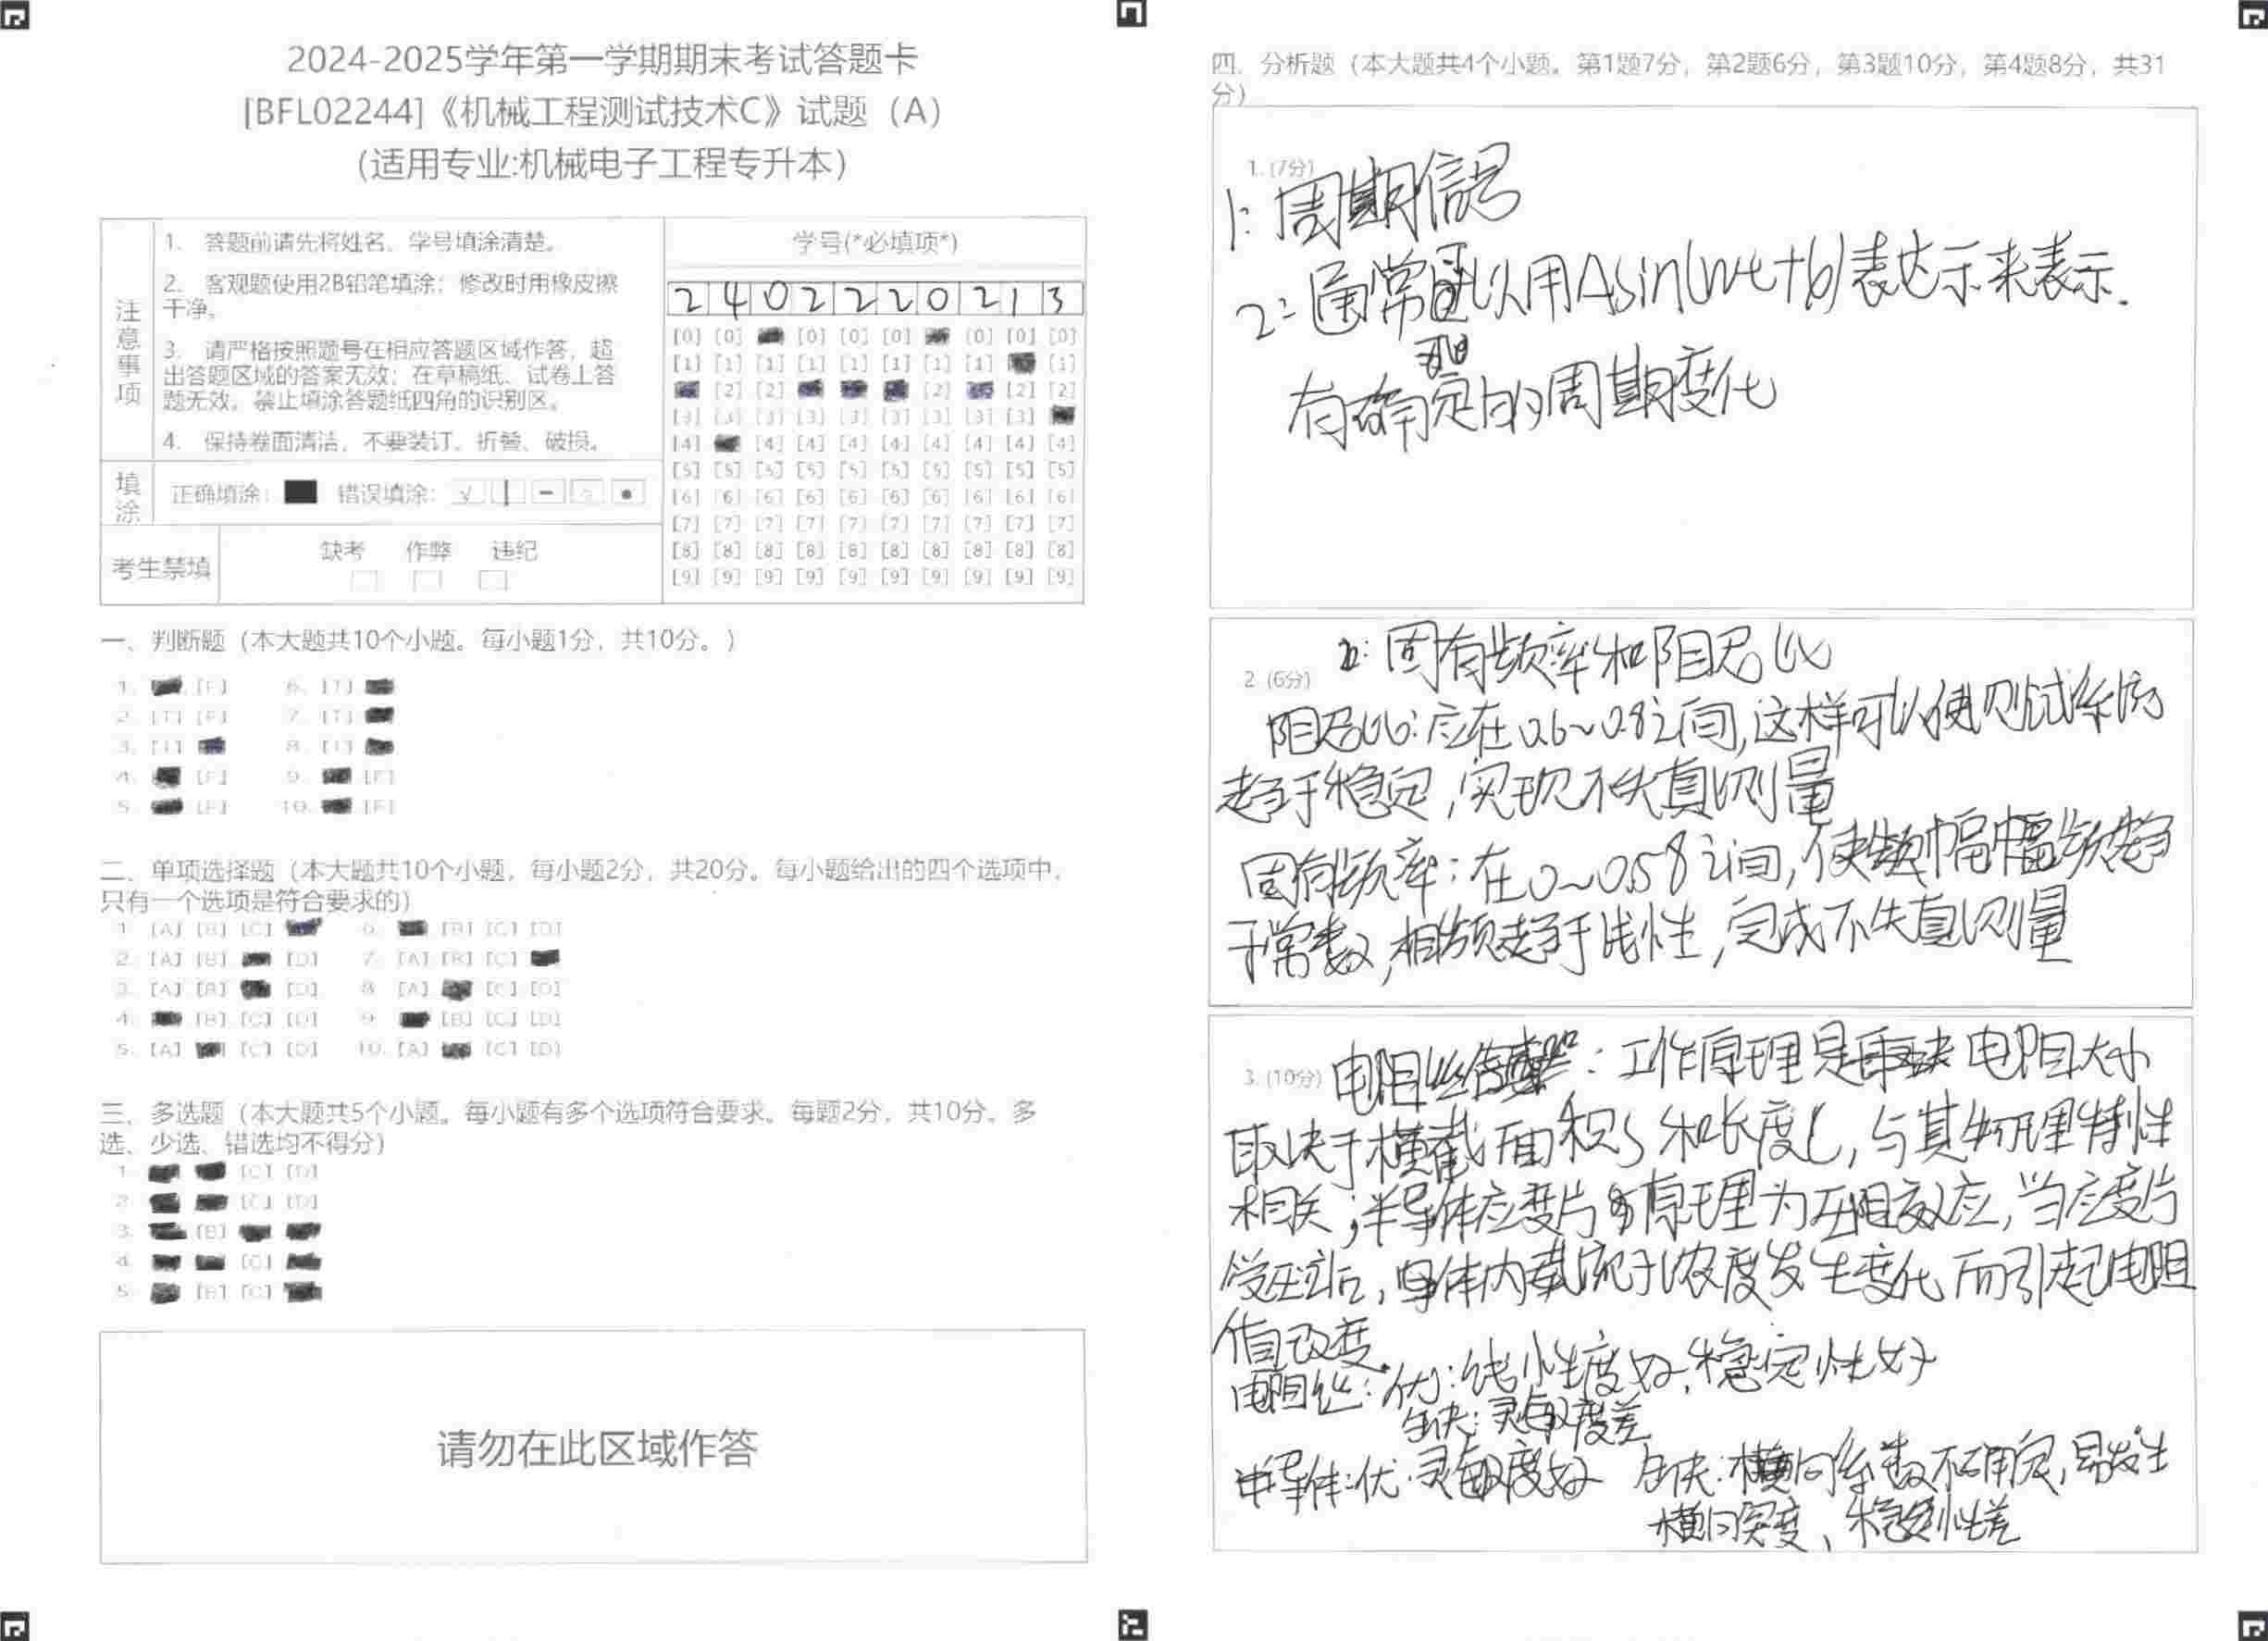 2024-2025学年第一学期期末考试答题卡
[BFL02244]《机械工程测试技术C》试题（A）
（适用专业:机械电子工程专升本）
注意事项
1. 答题前请先将姓名、学号填涂清楚。
2. 客观题使用2B铅笔填涂；修改时用橡皮擦
干净。
3. 请严格按照题号在相应答题区域作答，超
出答题区域的答案无效；在草稿纸、试卷上答
题无效。禁止填涂答题纸四角的识别区。
4. 保持卷面清洁，不要装订、折叠、破损。
填涂
正确填涂： 错误填涂：
考生禁填
缺考 作弊 违纪
学号(*必填项*)
2 4 0 2 2 2 0 2 1 3
[0] [0] [0] [0] [0] [0] [0] [0]
[1] [1] [1] [1] [1] [1] [1] [1] [1]
[2] [2] [2] [2] [2]
[3] [3] [3] [3] [3] [3] [3] [3] [3]
[4] [4] [4] [4] [4] [4] [4] [4] [4]
[5] [5] [5] [5] [5] [5] [5] [5] [5] [5]
[6] [6] [6] [6] [6] [6] [6] [6] [6] [6]
[7] [7] [7] [7] [7] [7] [7] [7] [7] [7]
[8] [8] [8] [8] [8] [8] [8] [8] [8] [8]
[9] [9] [9] [9] [9] [9] [9] [9] [9] [9]
一、判断题（本大题共10个小题。每小题1分，共10分。）
1. [F] 6. [T]
2. [T] [F] 7. [T]
3. [T] 8. [T]
4. [F] 9. [F]
5. [F] 10. [F]
二、单项选择题（本大题共10个小题，每小题2分，共20分。每小题给出的四个选项中，
只有一个选项是符合要求的）
1. [A] [B] [C] 6. [B] [C] [D]
2. [A] [B] [D] 7. [A] [B] [C]
3. [A] [B] [D] 8. [A] [C] [D]
4. [B] [C] [D] 9. [B] [C] [D]
5. [A] [C] [D] 10. [A] [C] [D]
三、多选题（本大题共5个小题。每小题有多个选项符合要求。每题2分，共10分。多
选、少选、错选均不得分）
1. [C] [D]
2. [C] [D]
3. [B]
4. [C]
5. [B] [C]
请勿在此区域作答
四、分析题（本大题共4个小题。第1题7分，第2题6分，第3题10分，第4题8分，共31
分）
1. (7分)
1: 周期信号
2: 通常可以用Asin(wt+b)表达示来表示.
有确定的周期变化
2: 固有频率和阻尼比
2. (6分)
阻尼比: 应在0.6~0.8之间,这样可以使测试系统
趋于稳定,实现不失真测量
固有频率: 在0~0.58之间,使幅频趋
于常数,相频趋于线性,完成不失真测量
3. (10分) 电阻丝: 工作原理是 电阻大小
取决于横截面积S和长度L,与其物理特性
相关;半导体应变片原理为压阻效应,当应变片
受压后,导体内载流子浓度发生变化而引起电阻
值改变.
电阻丝: 优: 线性度好,稳定性好
缺: 灵敏度差
半导体: 优: 灵敏度好 缺: 横向系数不确定,易发生
横向突变、稳定性差